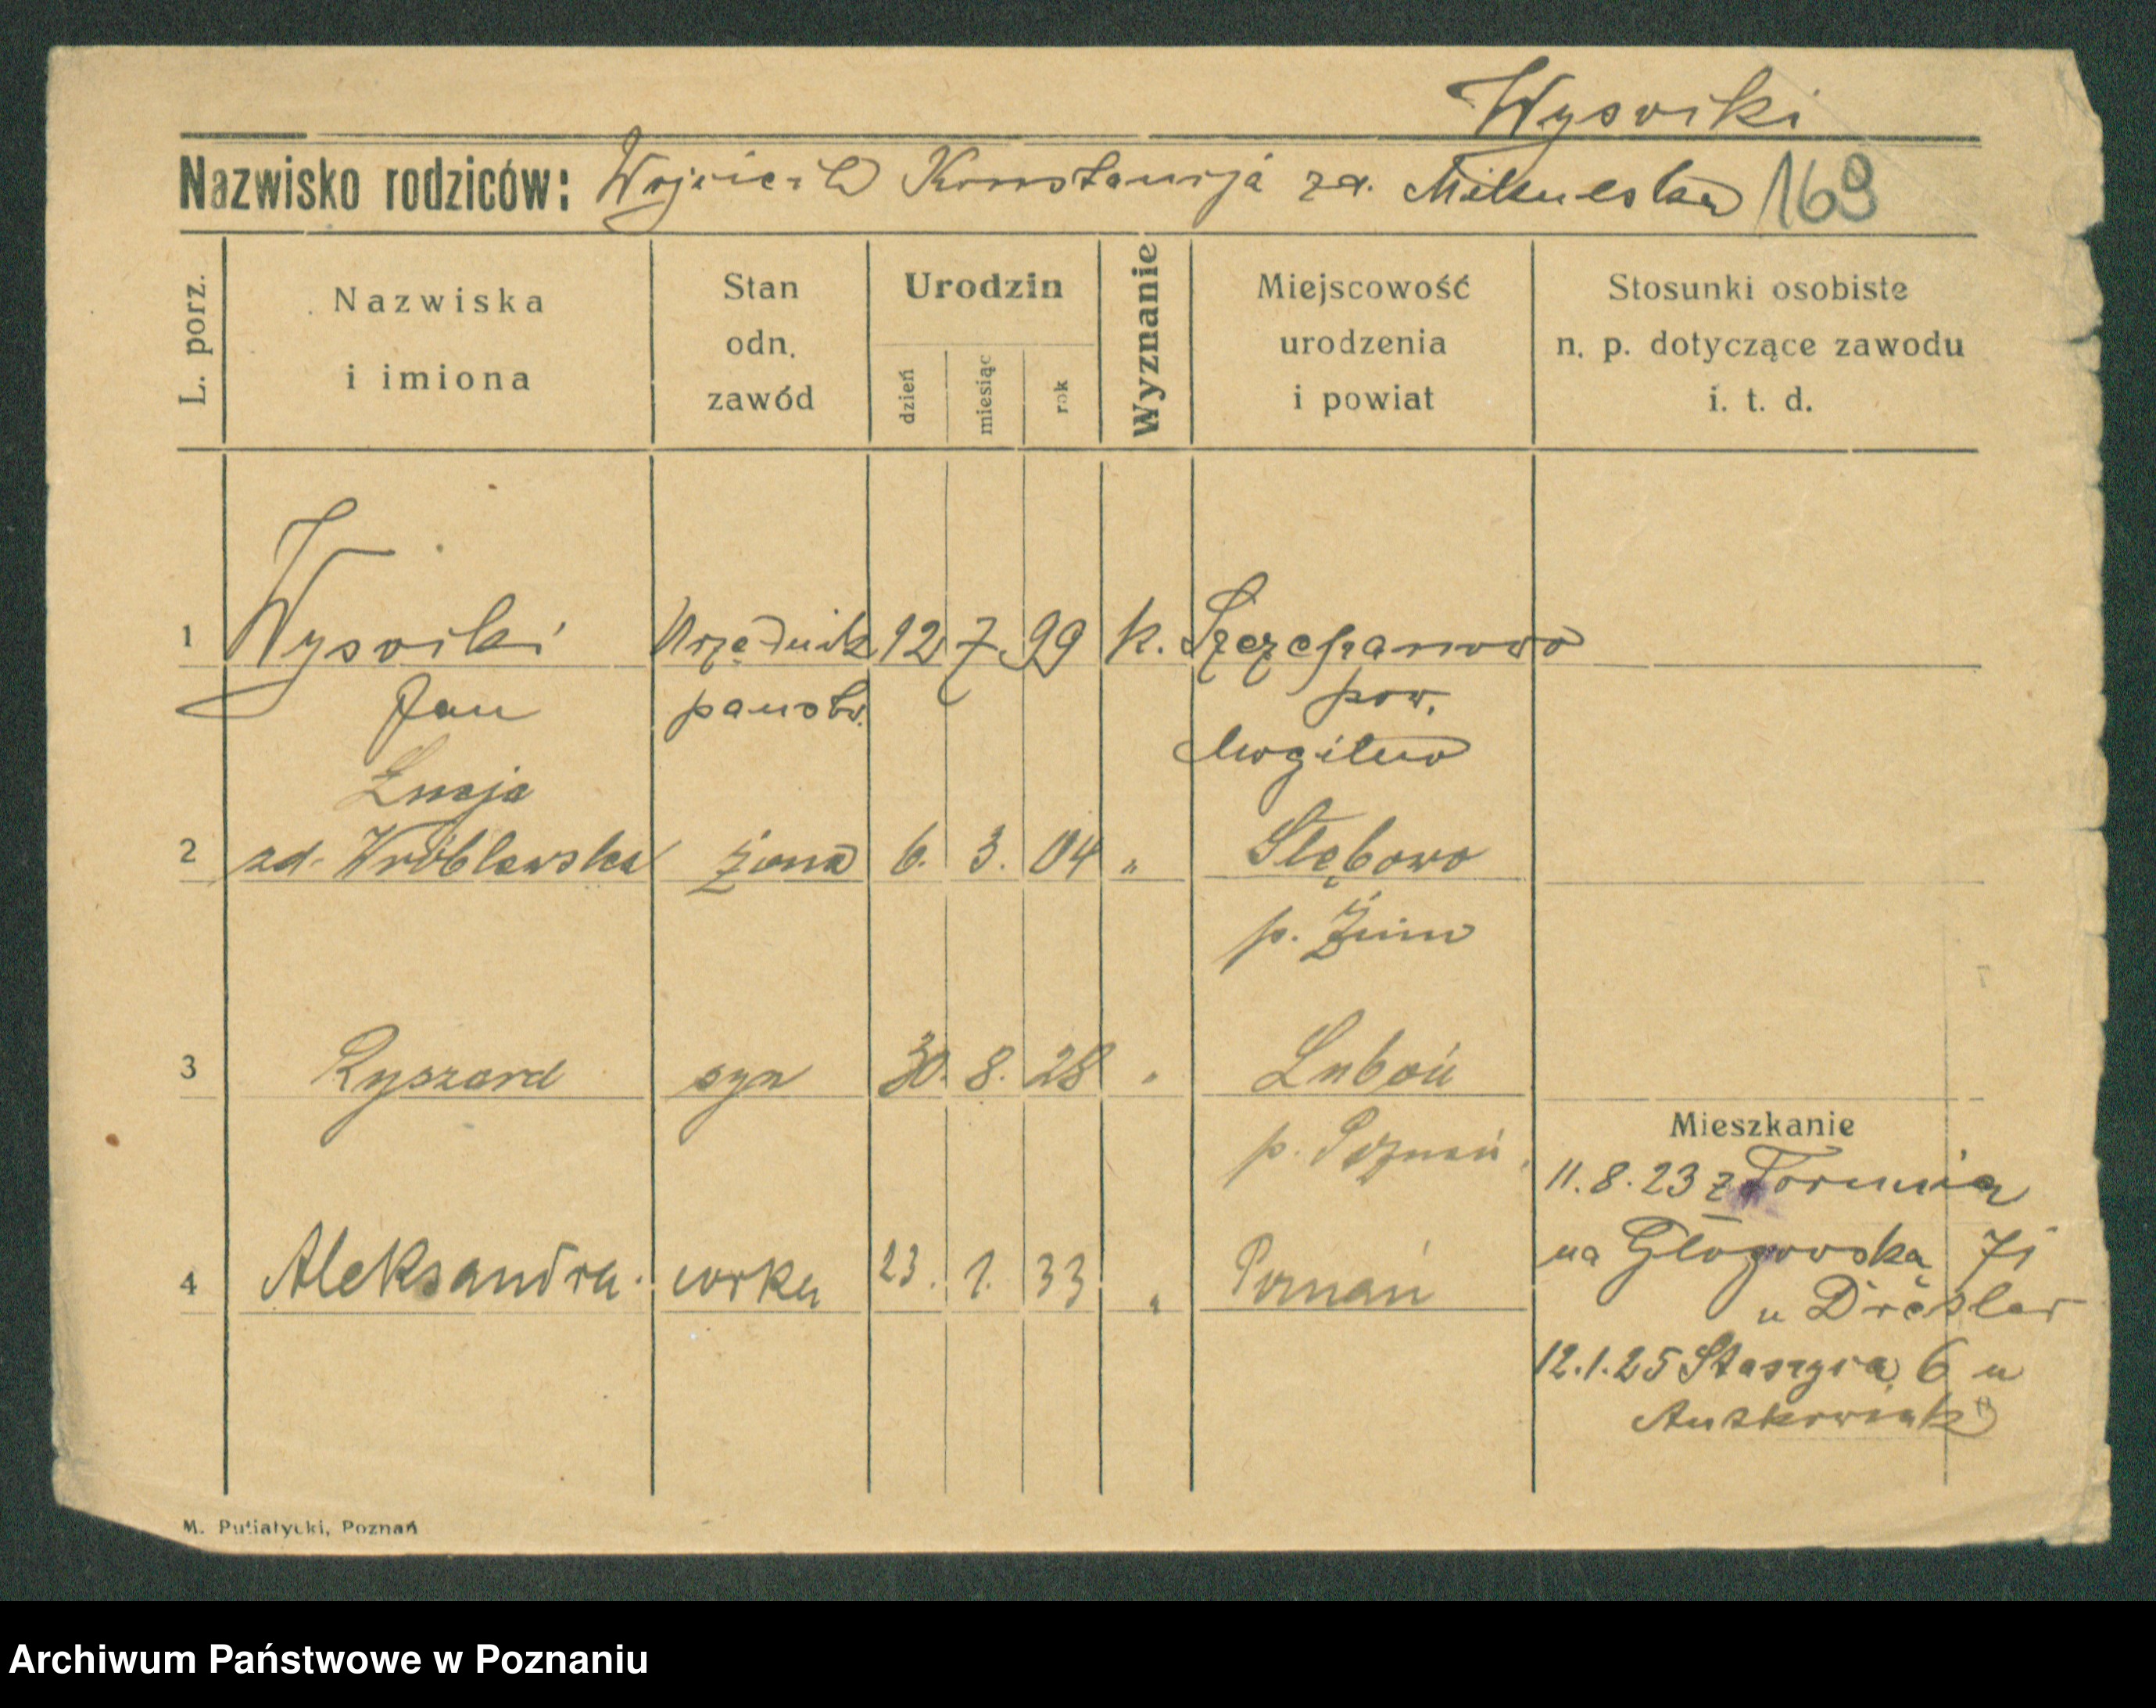 Wysocki
Nazwisko rodziców: Wojciech Konstancja zd. 169
L. porz.
Nazwiska i imiona
Stan odn. zawód
Urodzin
dzień miesiąc rok
Wyznanie
Miejscowość urodzenia i powiat
Stosunki osobiste n. p. dotyczące zawodu i. t. d.
1 Wysocki Urzędnik 12 7 99 k. Szczepanowo
Jan państw. pow.
Mogilno
Łucja
2 zd. Wróblewska żona 6. 3. 04 " Słębowo
p. Żnin
3 Ryszard syn 30. 8. 28 " Luboń
p. Poznań
4 Aleksandra córka 23. 1. 33 " Poznań
Mieszkanie
11.8.23 z Torunia
na Głogowska 71
u Dresler
12.1.25 Staszyca 6 u
M. Putiatycki, Poznań
Archiwum Państwowe w Poznaniu